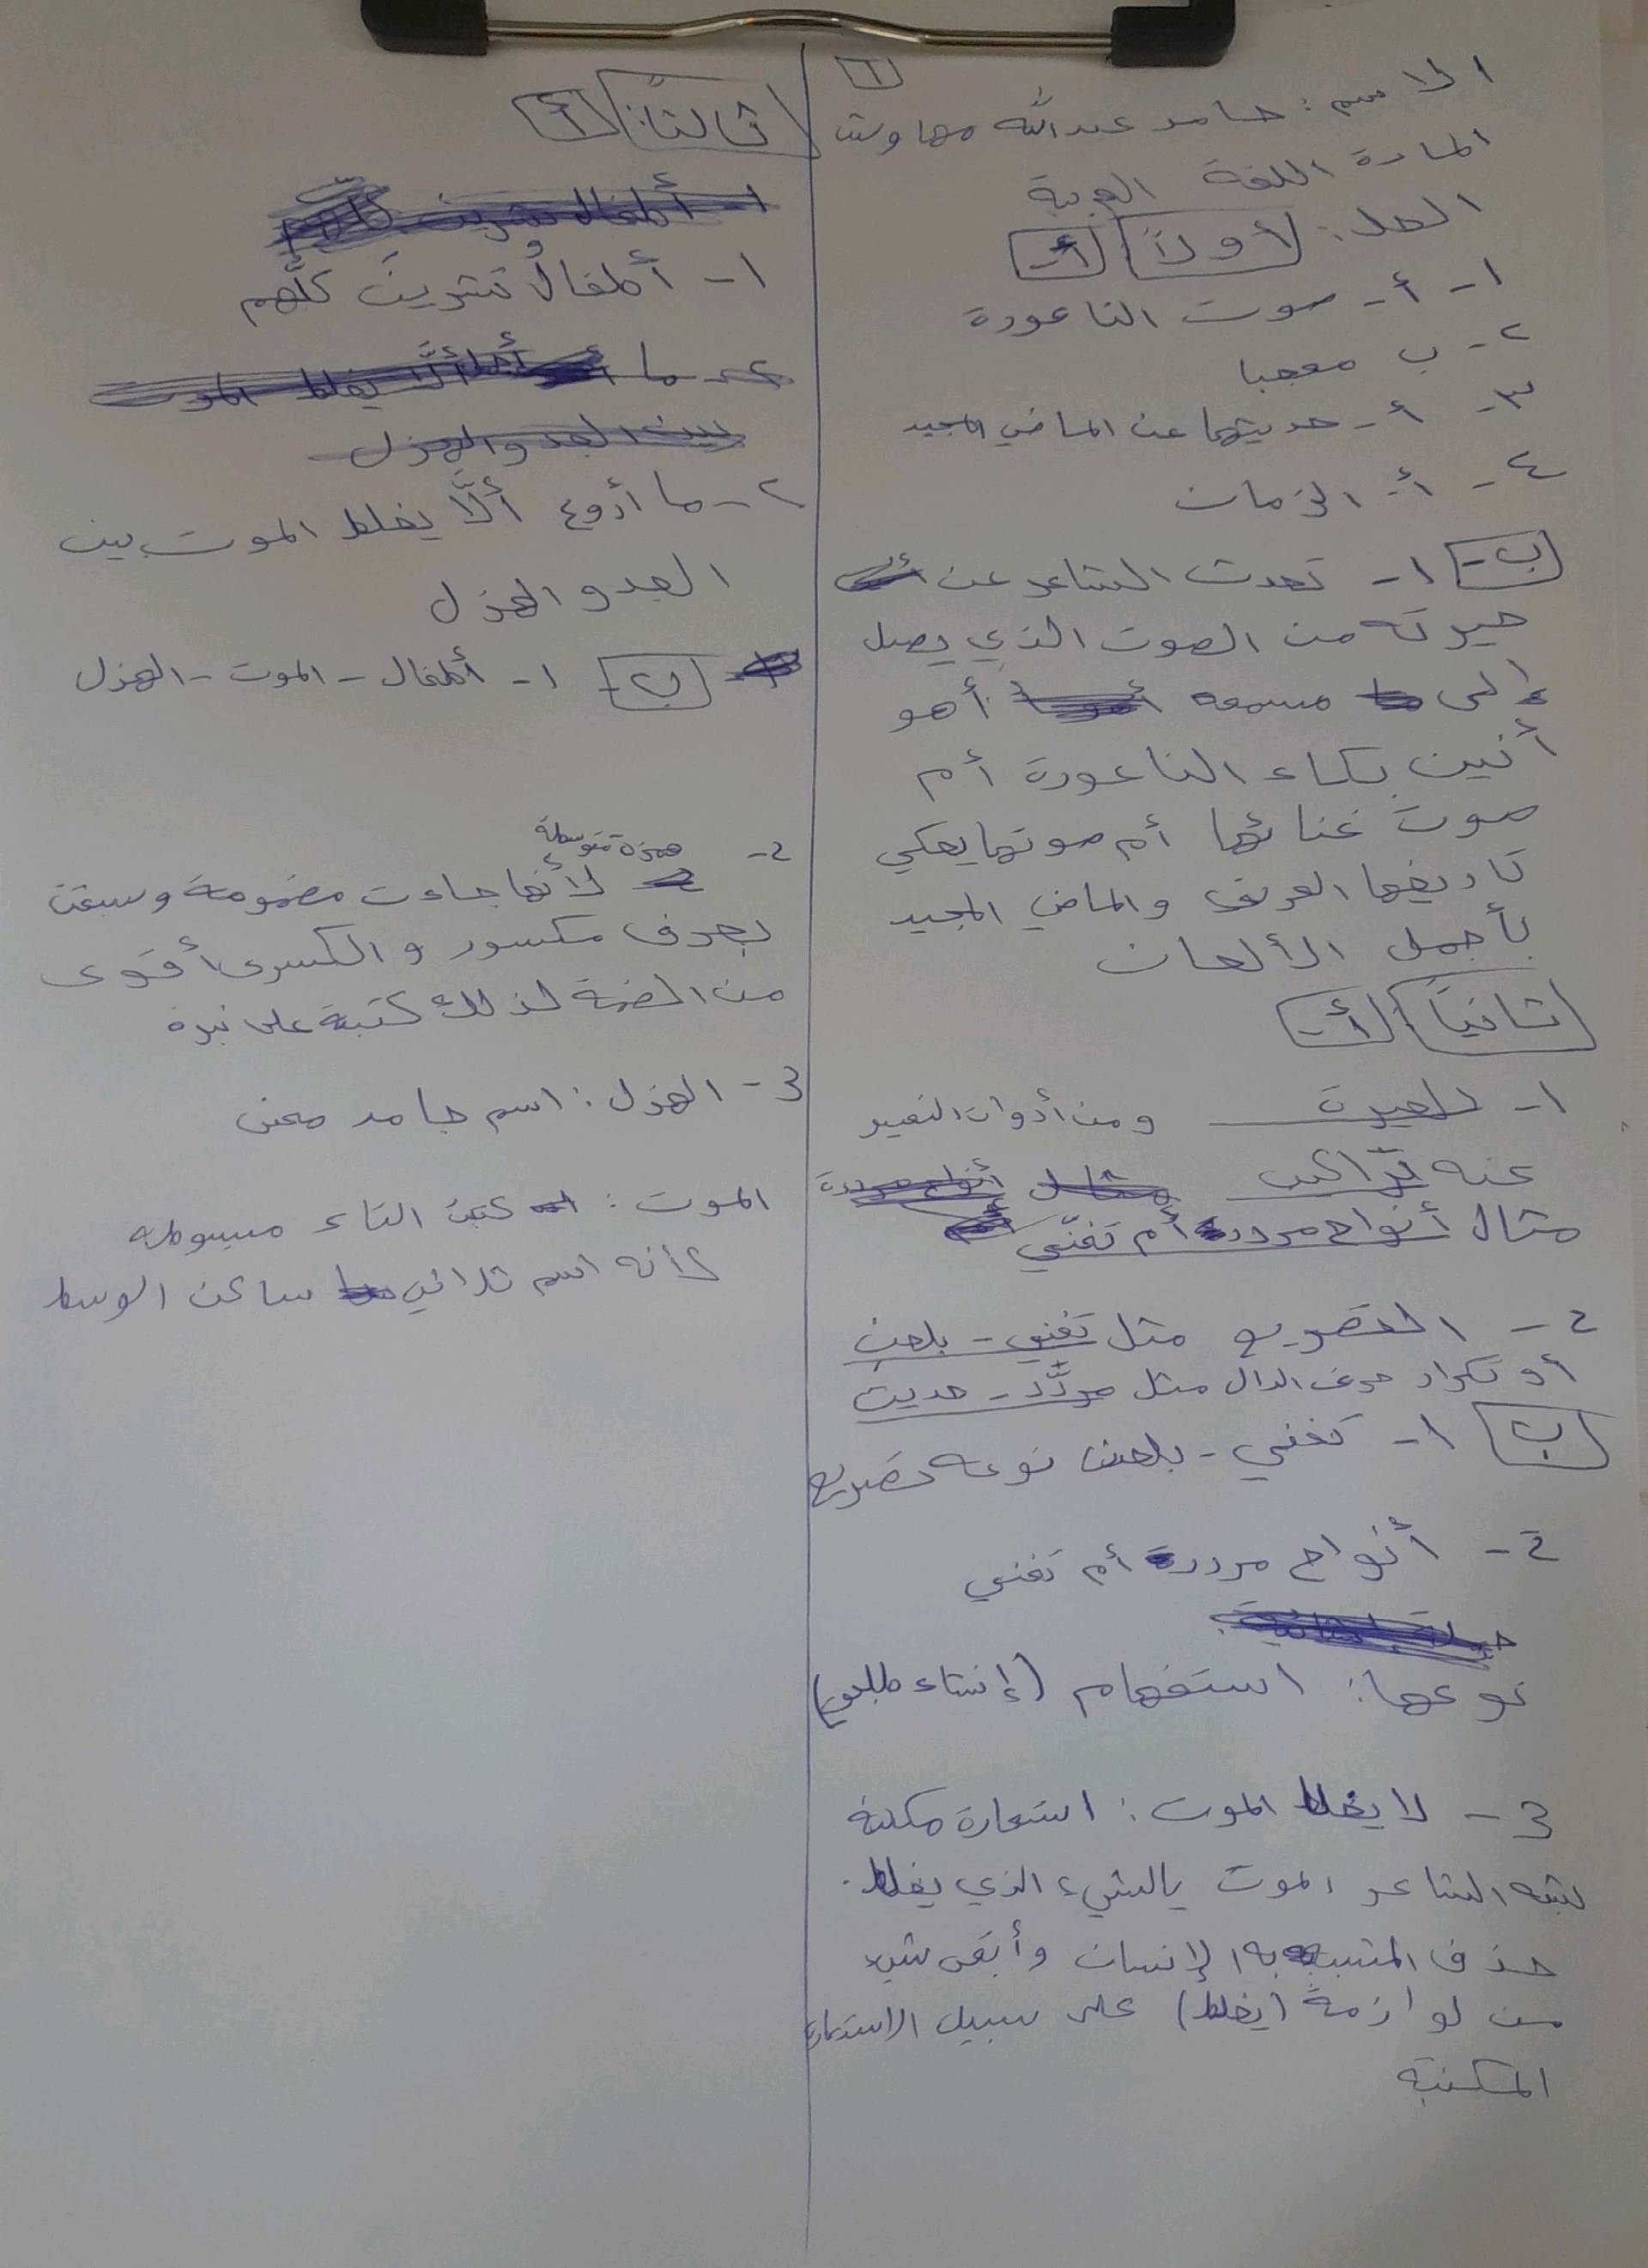 ١
الاسم: حامد عبدالله مهاوش
المادة اللغة العربية
الحل: أولاً أ-
١- أ- صوت الناعورة
٢- ب معجبا
٣- أ- حديثها عن الماضي المجيد
٤- أ- الزمان
ب- ١- تحدث الشاعر عن
حيرته من الصوت الذي يصل
إلى مسمعه أهو
أنين بكاء الناعورة أم
صوت غنائها أم صوتها يحكي
تاريخها العريق والماضي المجيد
بأجمل الألحان
ثانياً أ-
١- الحيرة ومن أدوات التعبير
عنه تراكيب
مثال أنواح مرددة أم تغنّي
2- التصريع مثل تغني - بلحن
أو تكرار حرف الدال مثل مردَّد - حديث
ب ١- تغني - بلحن نوعه تصريع
2- أنواح مرددة أم تغني
نوعها: استفهام (إنشاء طلبي)
3- لا يغلط الموت: استعارة مكنية
شبه الشاعر الموت بالشيء الذي يغلط.
حذف المشبه به الإنسان وأبقى شيء
من لوازمة (يغلط) على سبيل الاستعارة
المكنية
ثالثاً: أ
١- أطفالُ تشرينَ كلُّهم
٢- ما أروع ألَّا يغلط الموت بين
الجد والهزل
ب- ١- أطفال - الموت - الهزل
2- همزة متوسطة لأنها جاءت مضمومة وسبقت
بحرف مكسور والكسرى أقوى
من الضمة لذلك كتبة على نبرة
3- الهزل: اسم جامد معنى
الموت: كتبت التاء مبسوطة
لأنه اسم ثلاثي ساكن الوسط